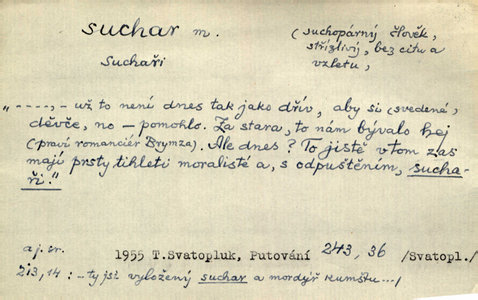 suchar m. (suchopárný člověk,
střízlivý, bez citu a
vzletu,
Suchaři
„ - - - -, - už to není dnes tak jako dřív, aby si (svedené,
děvče, no – pomohlo. Za stara, to nám bývalo hej
(praví romanciér Brymza). Ale dnes? To jistě v tom zas
mají prsty tihleti moralisté a, s odpuštěním, sucha-
ři."
a j. sr. 1955 T.Svatopluk, Putování 243, 36 /Svatopl./
213,14 : .. ty jsi vyložený suchar a mordýř kumštu.../